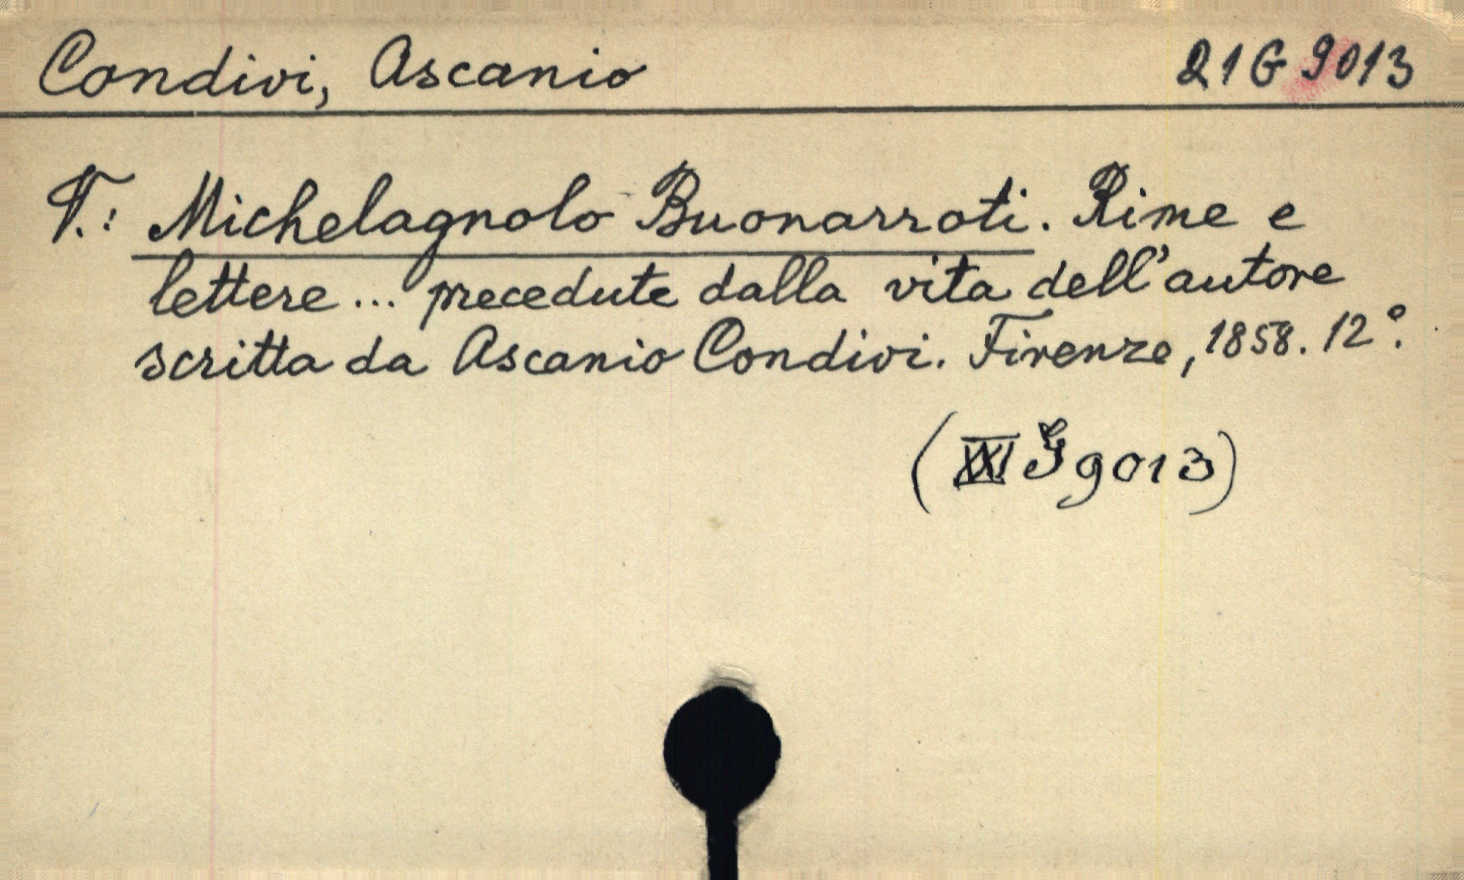 Condivi, Ascanio 21G 9013
V.: Michelagnolo Buonarroti. Rime e
lettere... precedute dalla vita dell'autore
scritta da Ascanio Condivi. Firenze, 1858. 12°.
(XXI G 9013)